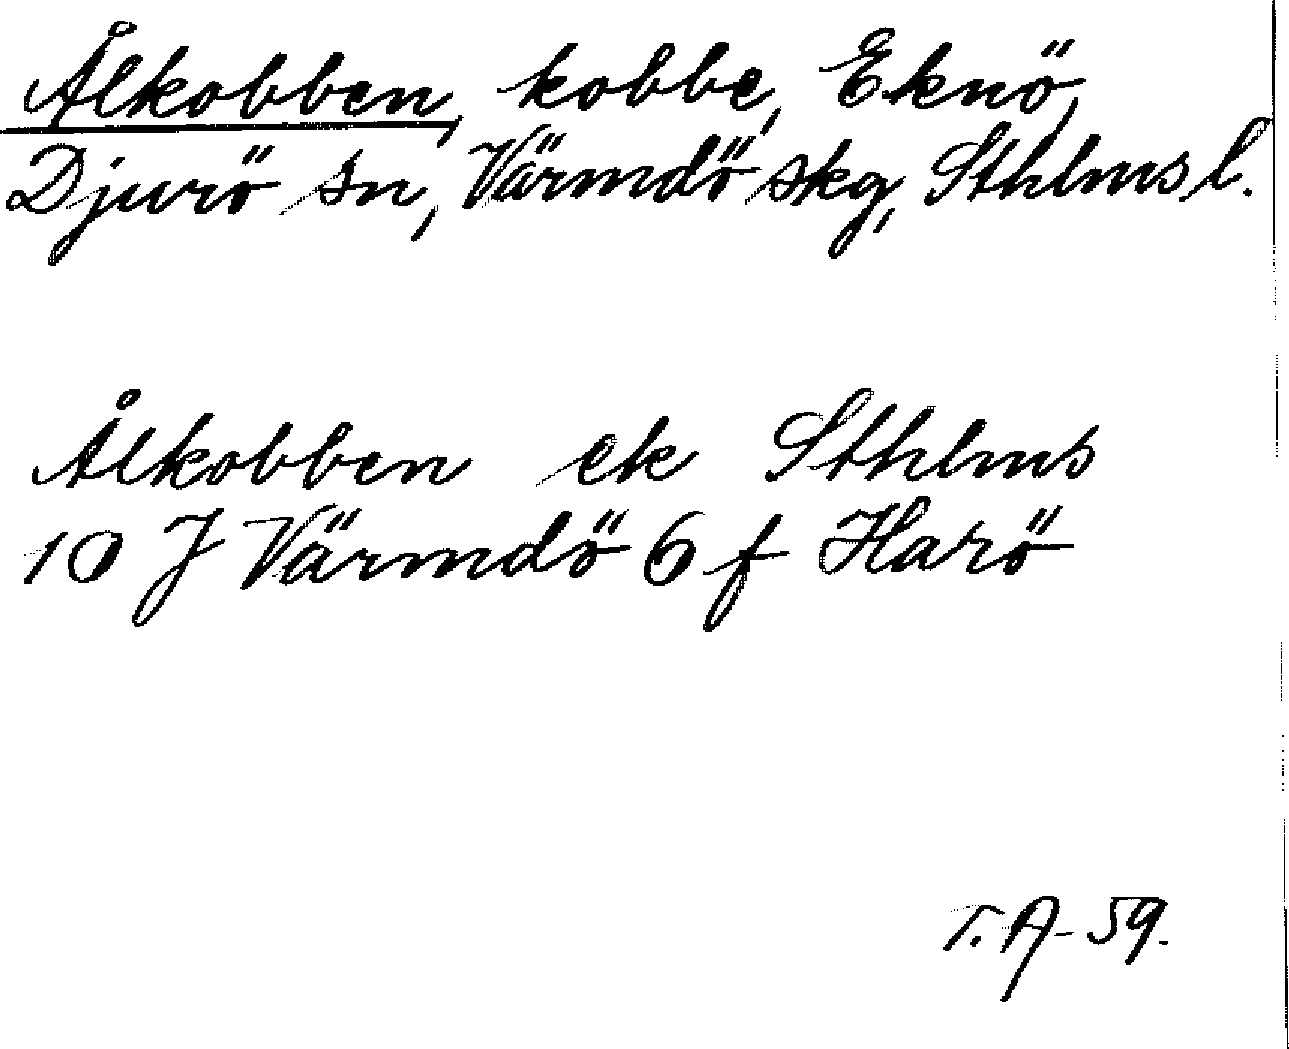 Ålkobben, kobbe, Eknö,
Djurö sn, Värmdö skg, Sthlms l.
Ålkobben ek Sthlms
10 J Värmdö 6 f Harö
T. A - 59.